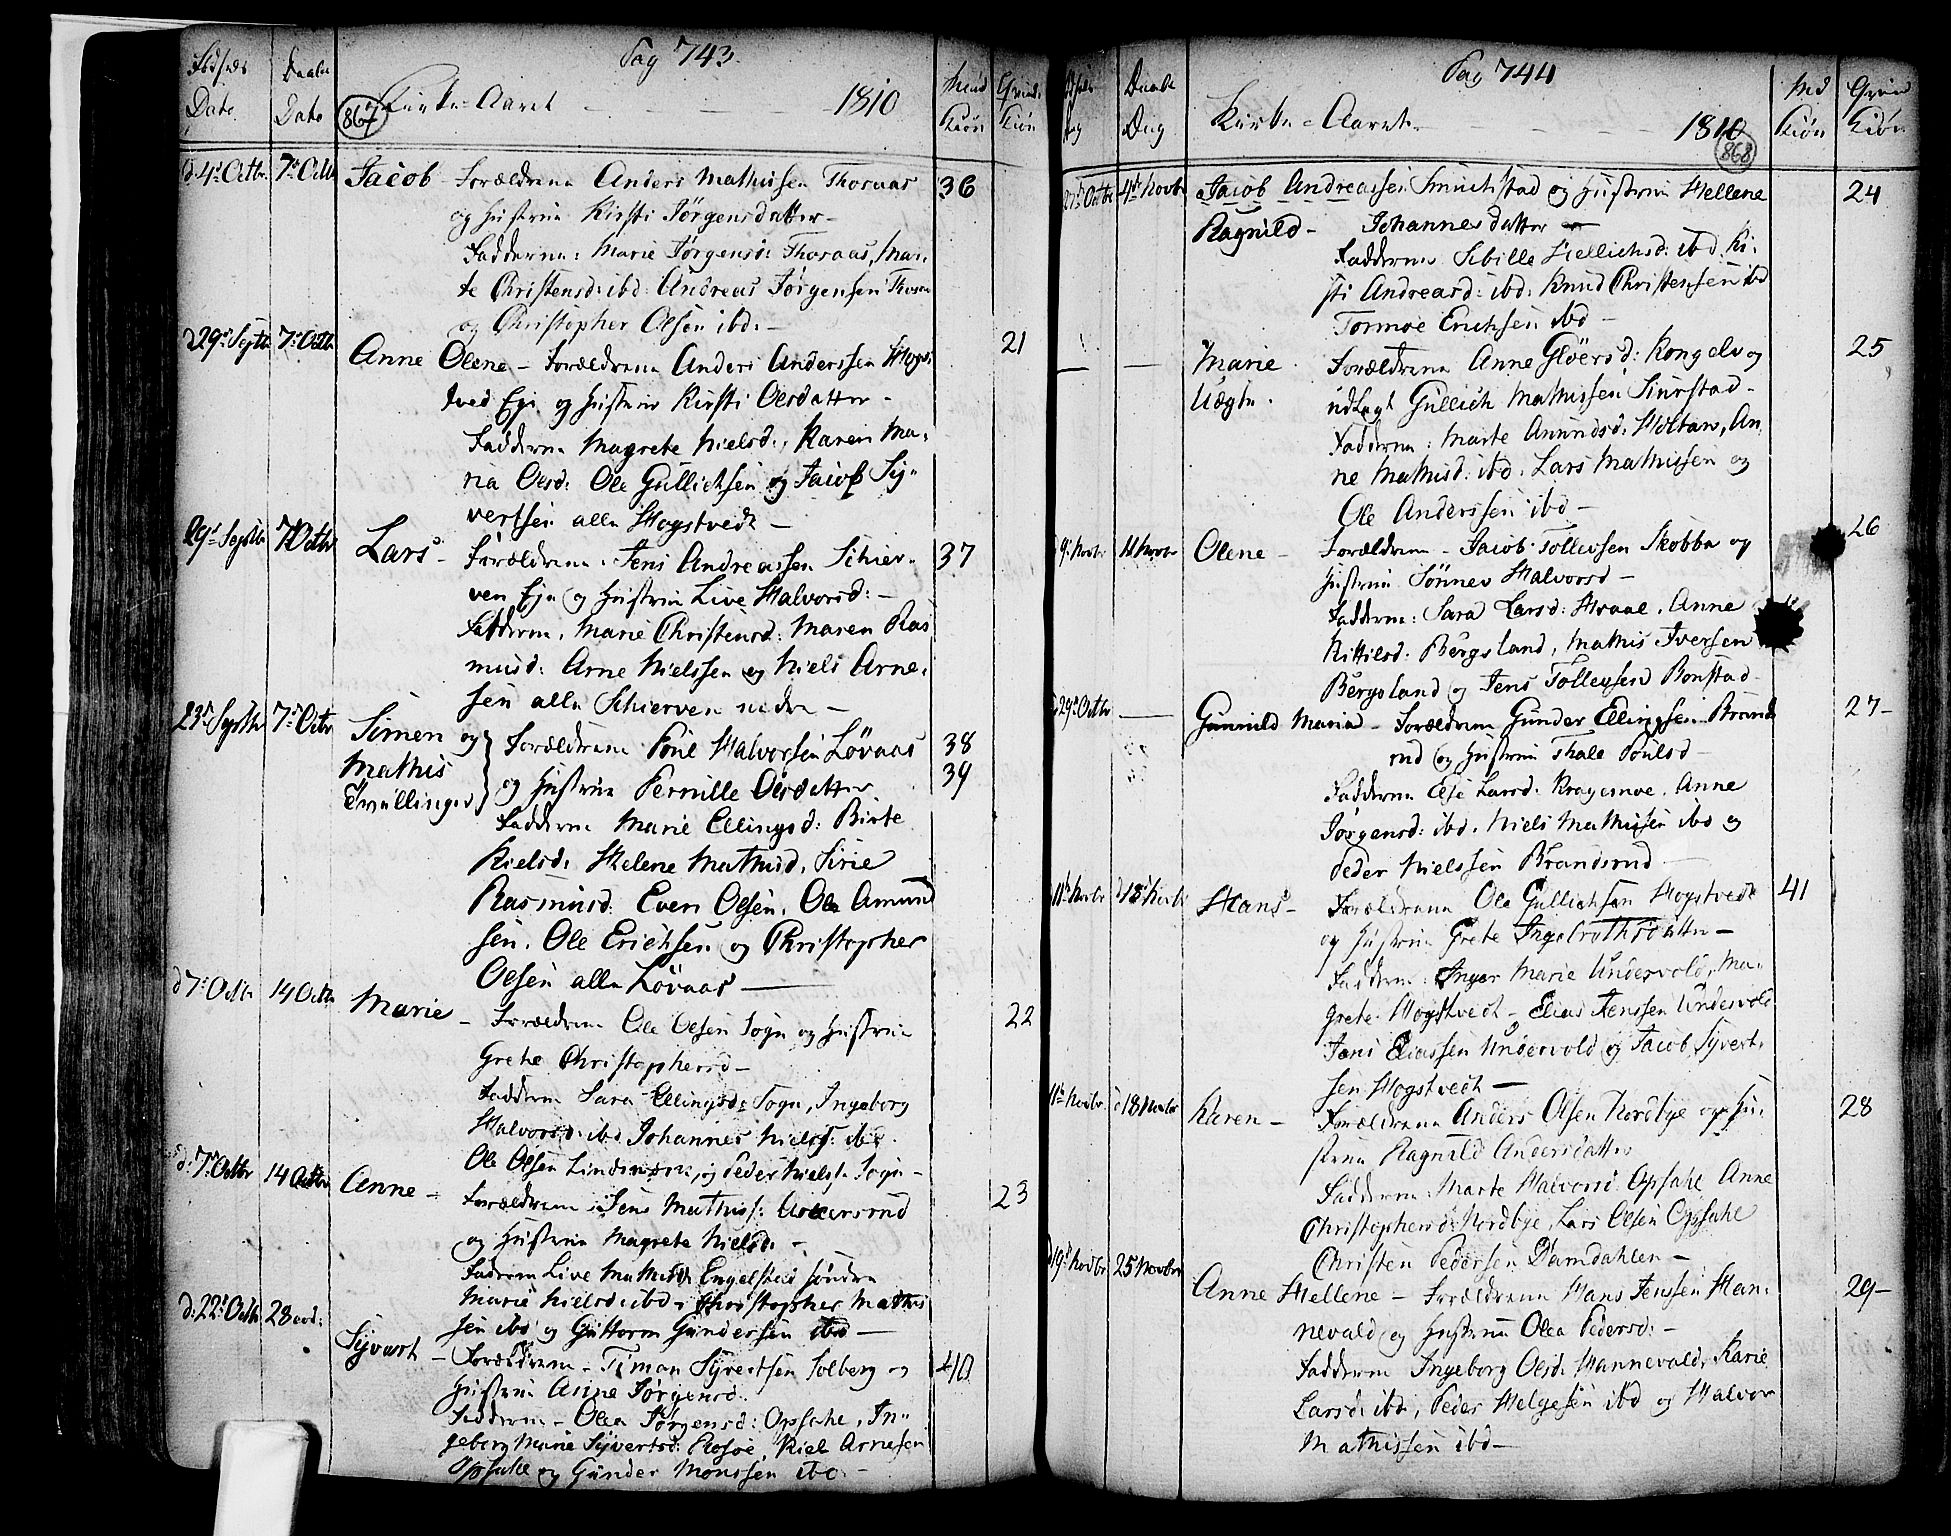 Pag 743
Fødsels Daabs Mand Qvind
Date Date 867 Kirke-Aaret 1810 Kiøn Kiøn
d. 4de Octbr 7de Octbr Jacob Forældrene Anders Mathissen Thoraas 36
og Hustrue Kirsti Jørgensdatter
Fadderne: Marie Jørgensd: Thoraas, Mar-
te Christensd: ibd: Andreas Jørgensen Thoraas
og Christopher Olsen ibd. —
d 29de Septbr 7de Octbr Anne Olene — Forældrene Anders Anderssen Hogst- 21
tved Eje og Hustrue Kirsti Olsdatter —
Fadderne Magrete Nielsd., Karen Ma-
ria Olsd: Ole Gullichsen og Jacob Sy-
vertsen alle Hogstvedt —
29de Septbr 7 Octbr Lars — Forældrene. Jens Andreassen Schier- 37
ven Eje og Hustrue Live Halvorsd: —
Fadderne. Marie Christensd: Maren Ras
musd: Arne Nielssen og Niels Arne-
sen alle Schierven nedre —
23de Septbr 7de Octbr Simen og Forældrene Poul Halvorsen Løvaas 38
Mathis og Hustrue Pernille Olsdatter 39
Tvillinger Fadderne Marie Ellingsd: Birte
Nielsd. Helene Mathisd, Sirie
Rasmusd: Even Olsen, Ole Amund
sen. Ole Erichsen og Christopher
Olsen alle Løvaas —
d 7de Octbr 14 Octbr Marie — Forældrene Ole Olsen Sogn og Hustrue 22
Grethe Christophersd —
Fadderne Sara Ellingsd: Sogn, Ingeborg
Halvorsd: ibd Johannes Nielss: ibd
Ole Olsen Lindemoen, og Peder Nielss. Sogn —
d: 7de Octbr 14 Octbr Anne — Forældrene: Jens Mathiss: 23
og Hustrue Magrete Nielsd. —
Fadderne Live Mathisd: Engelstad søndre
Marie Nielsd: ibd, Christopher Mathis
sen ibd og Guttorm Gundersen ibd —
d: 22de Octbr 28 Syvert — Forældrene — Simon Syvertsen Solberg og 40
Hustrue Anne Jørgensd.
Fadderne — Olea Jørgensd: Opsahl, In-
geborg Marie Syvertsd: Niels Arnesen
Opsahl og Gunder Monssen ibd. —
Pag 744
Fødsels Daabs Md Qvind
Dag Dag Kirke-Aaret 1810 868 Kiøn Kiøn
27de Octbr 4de Novbr Jacob Andreassen Smuchstad og Hustrue Hellene 24
Ragnild — Johannesdatter
Fadderne Sibille Hellichsd: ibd. Ki-
sti Andreasd: ibd: Knud Christensen ibd
Tormoe Erichsen ibd —
— — Marie Forældrene Anne Gløersd: Kongelv og 25
Uægte. udlagt Gullich Mathissen Sturstad —
Fadderne: Marte Amundsd. Holtan, An-
ne Mathisd: ibd. Lars Mathissen og
Ole Anderssen ibd —
9de Novbr 11 Novbr Olene — Forældrene — Jacob Tollevsen Skobba og 26
Hustrue Sønnev Halvorsd —
Fadderne: Sara Larsd: Hvaale. Anne
Kittilsd: Bergsland, Mathis Iversen
Bergsland og Jens Tollevsen Bonstad —
29de Octbr — Gunnild Maria — Forældrene Gunder Ellingsen Brands 27
rud og Hustrue Thale Poulsd —
Fadderne Else Larsd. Kragemoe. Anne
Jørgensd: ibd. Niels Mathisen ibd og
Peder Nielssen Brandsrud —
11te Novbr d 18de Novbr Hans — Forældrene Ole Gullichsen Hogstvedt 41
og Hustrue Grete Ingebrethsdatter —
Fadderne: Inger Marie Undersvold, Ma-
grete Hogstvedt — Elias Jenssen Undersvold
Jens Eliassen Undersvold og Jacob Syvert-
sen Hogstvedt —
11te Novbr d 18 Novbr Karen — Forældrene Anders Olsen Nordbye og Hu- 28
strue Ragnild Andersdatter
Fadderne: Marte Halvorsd. Opsahl Anne
Christophersd: Nordbye, Lars Olsen Opsahl
Christen Pedersen Damdahlen —
d 19de Novbr 25 Novbr Anne Hellene — Forældrene Hans Jenssen Han- 29
nevald og Hustrue Olea Pedersd: —
Fadderne Ingeborg Olsd. Hannevald, Karie
Larsd: ibd, Peder Helgesen ibd og Halvor
Mathissen ibd —